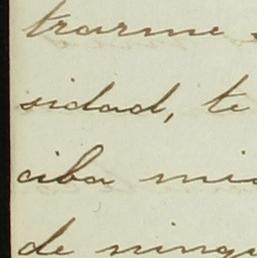 trarme
sidad, te
ciba mi
de ningu